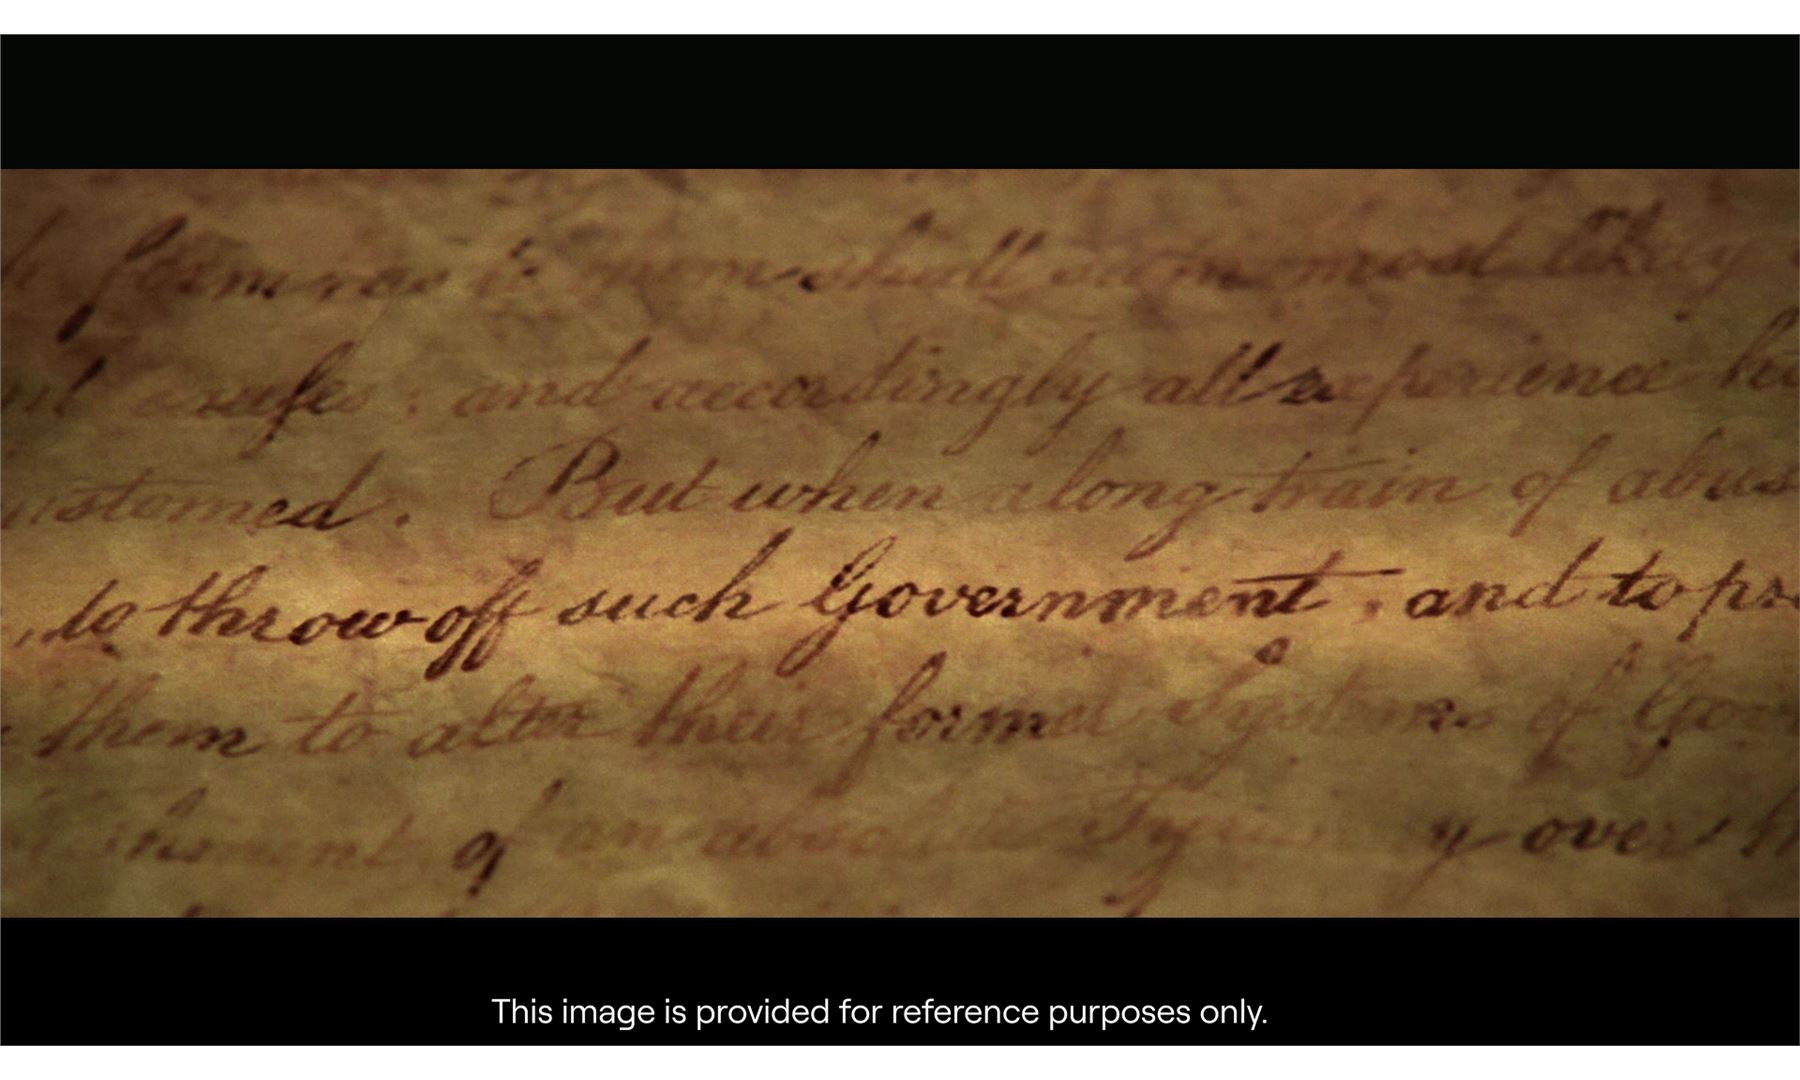 in such form, as to them shall seem most likely
causes; and accordingly all experience
customed. But when a long train of abus
, to throw off such Government, and to pro
them to alter their former Systems of Gov
of an absolute Tyranny over th
This image is provided for reference purposes only.